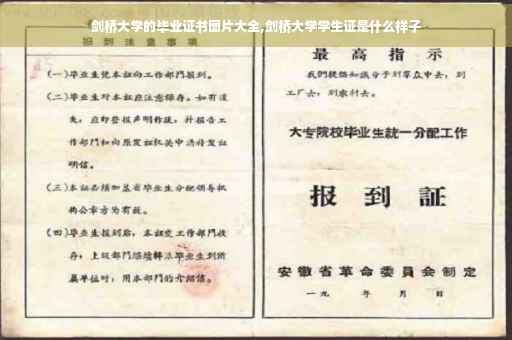 剑桥大学的毕业证书图片大全,剑桥大学学生证是什么样子
报到注意事项
(一)毕业生凭本证向工作部门报到。
(二)毕业生对本证应注意保存。如有遗
失,应即登报声明作废,并报告工
作部门和向原发证机关申请补发证
明信。
(三)本证必须加盖省毕业生分配领导机
构公章方为有效。
(四)毕业生报到后,本证交工作部门收
存;上级部门
毕业生到所
属单位时,用本部门的介绍信。
最高指示
我们提倡知识分子到羣众中去,到
工厂去,到农村去。
大专院校毕业生統一分配工作
报到証
安徽省革命委員会制定
一九 年 月 日